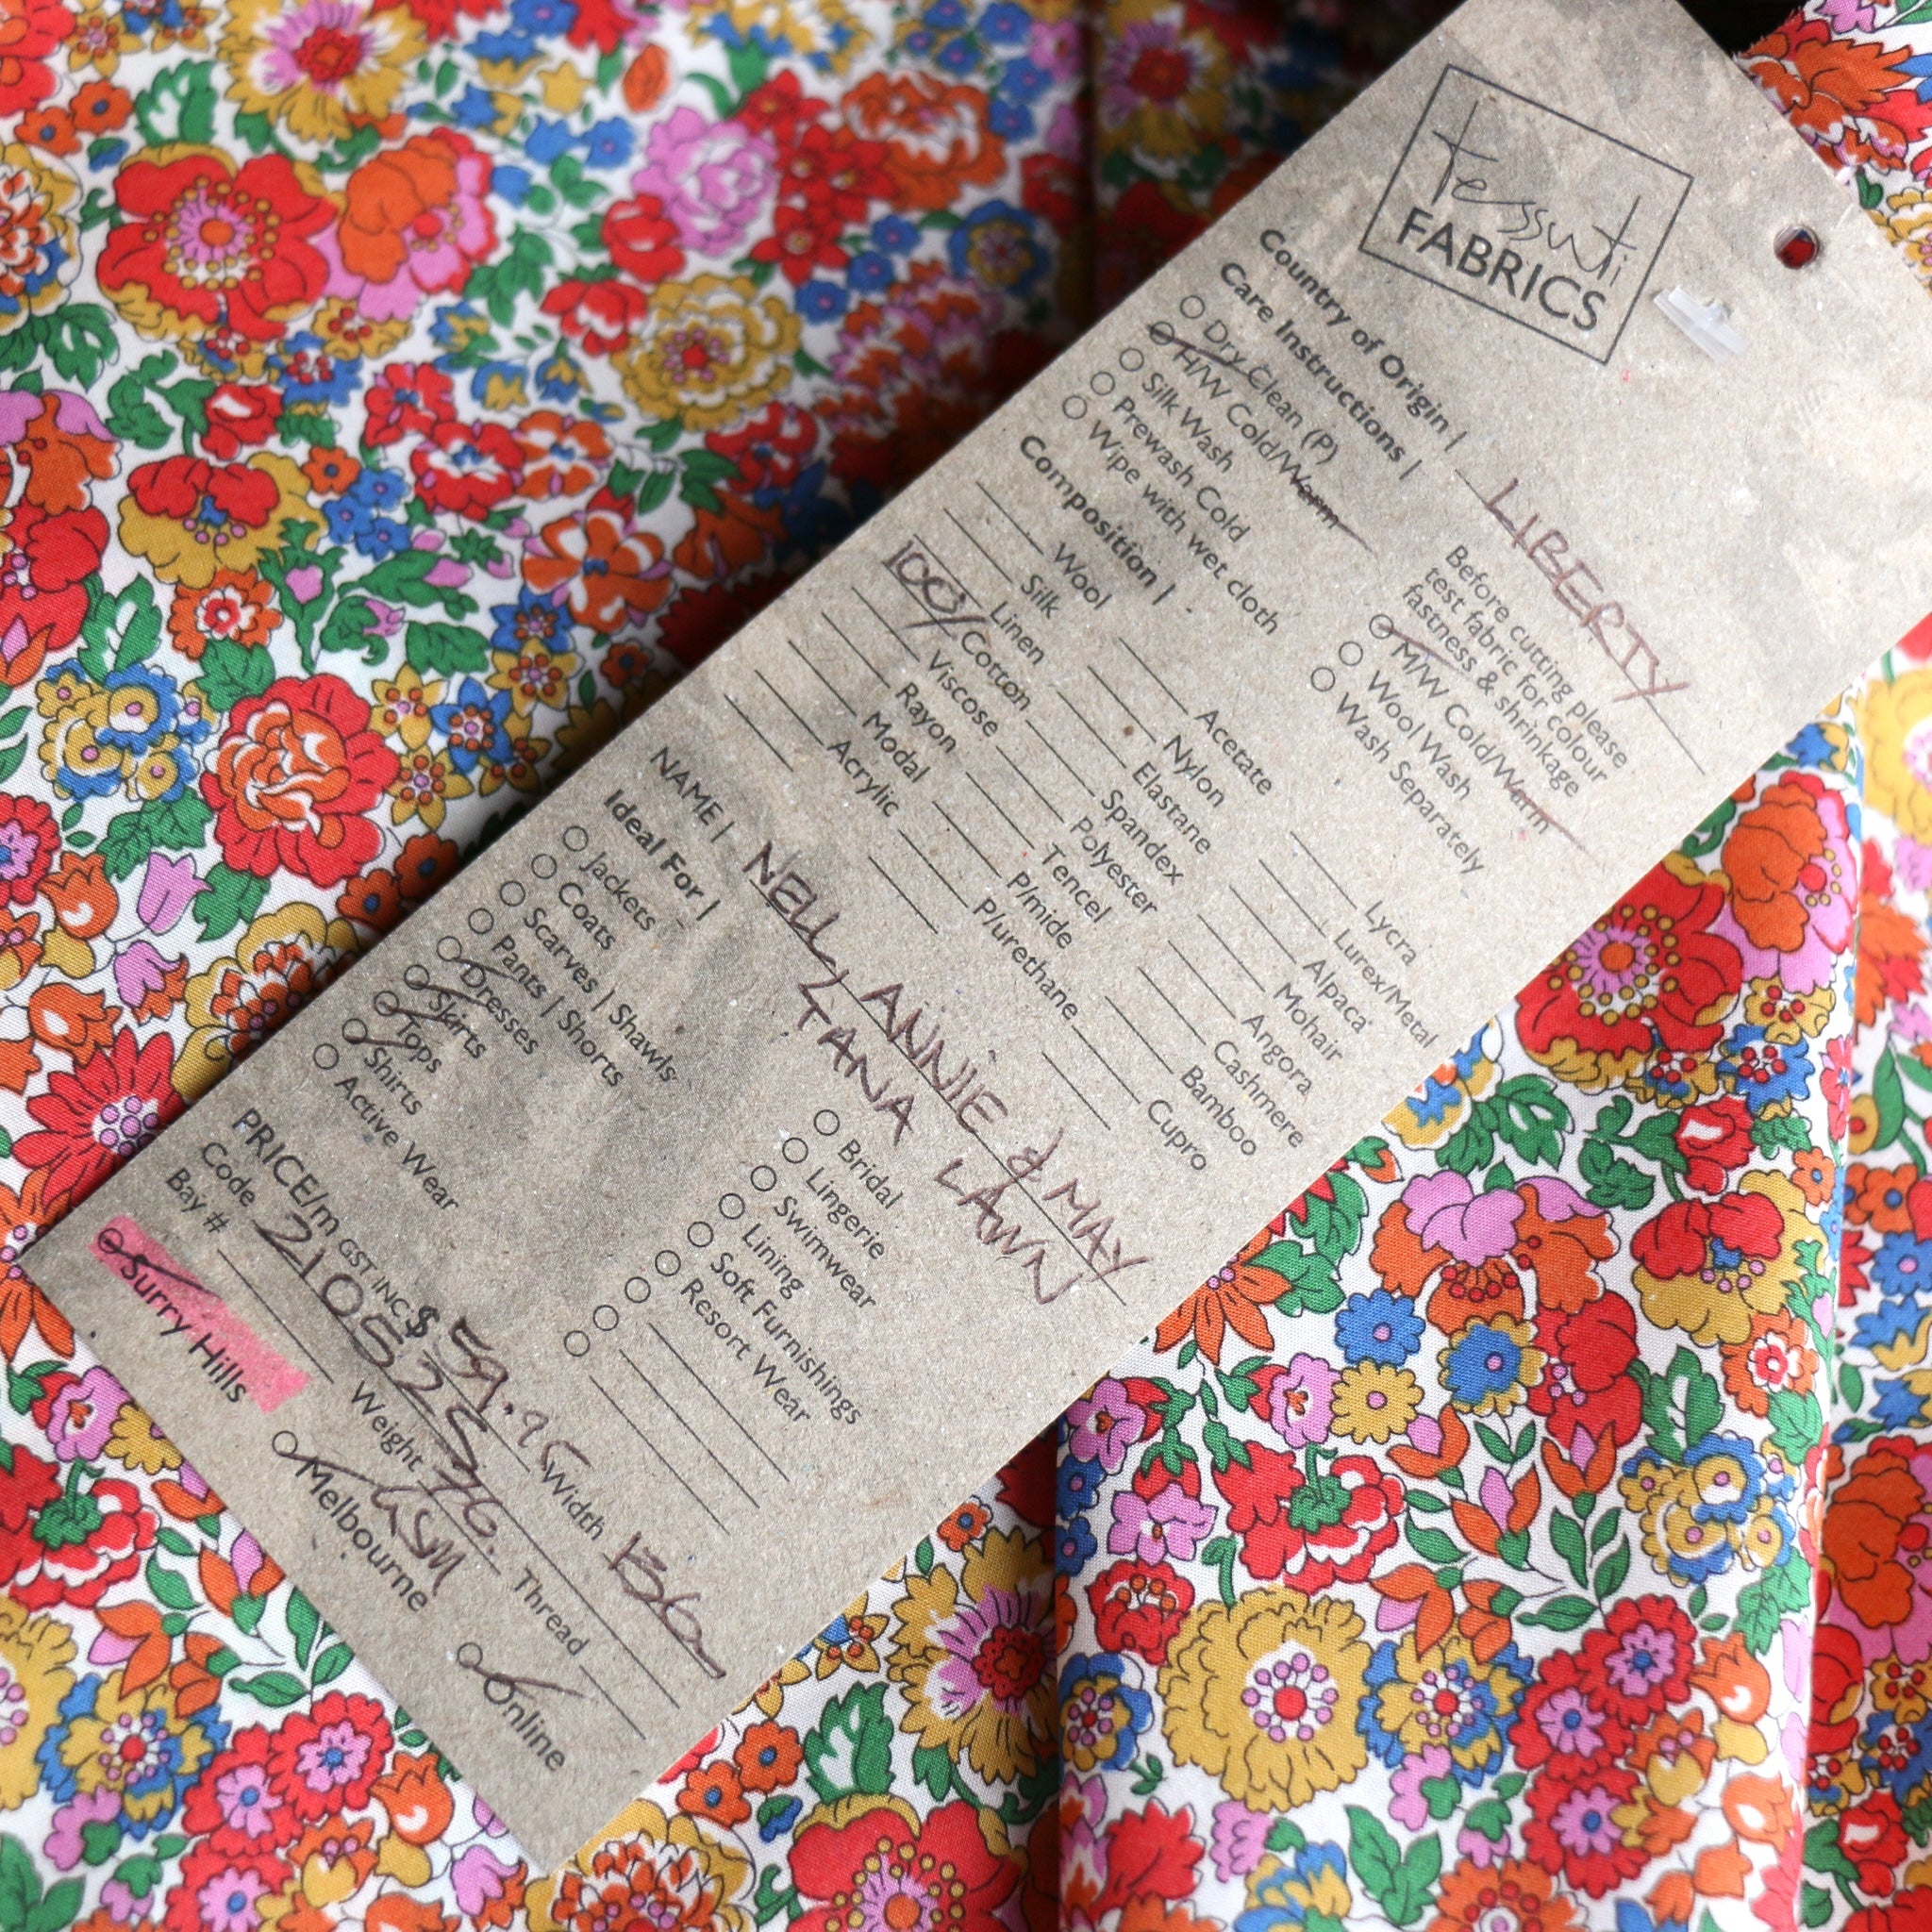 tessuti
FABRICS
Country of Origin | LIBERTY
Care Instructions |
Before cutting please
test fabric for colour
fastness & shrinkage
Dry Clean (P)
H/W Cold/Warm
Silk Wash
Prewash Cold
Wipe with wet cloth
M/W Cold/Warm
Wool Wash
Wash Separately
Composition |
Wool
Silk
Linen
100% Cotton
Viscose
Rayon
Modal
Acrylic
Acetate
Nylon
Elastane
Spandex
Polyester
Tencel
P/mide
P/urethane
Lycra
Lurex/Metal
Alpaca
Mohair
Angora
Cashmere
Bamboo
Cupro
NAME | NELL, ANNIE & MAY
TANA LAWN
Ideal For |
Jackets
Coats
Scarves | Shawls
Pants | Shorts
Dresses
Skirts
Tops
Shirts
Active Wear
Bridal
Lingerie
Swimwear
Lining
Soft Furnishings
Resort Wear
PRICE/m GST INC $ 59.95 Width 136
Code 2105225 Thread
Bay # Weight 76.
GSM
Surry Hills Melbourne Online